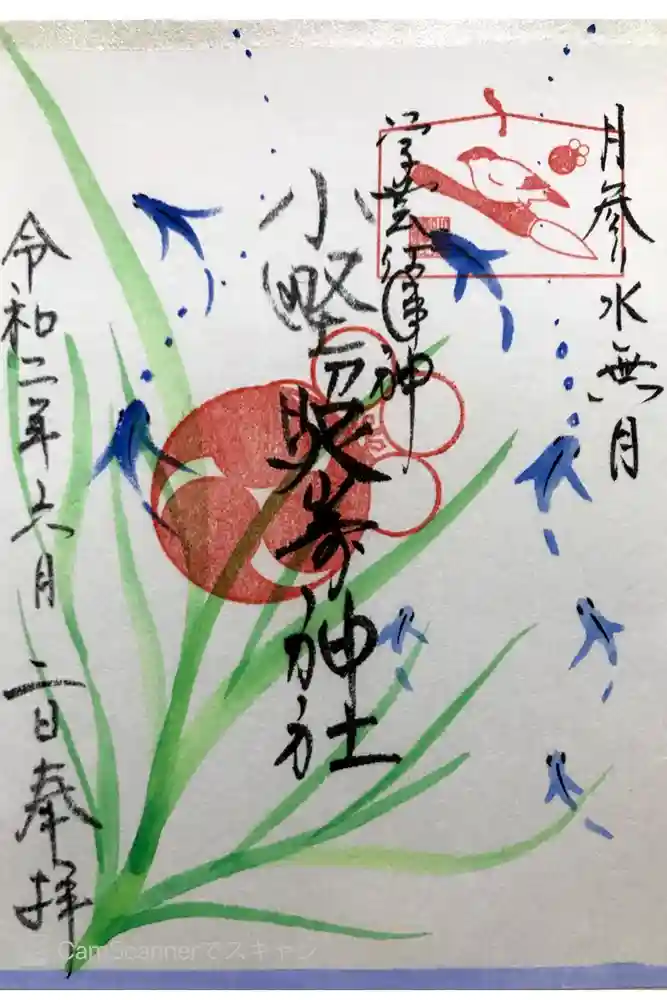 月参り 水無月
小野照崎神社
令和二年六月二日奉拝
CamScannerでスキャン